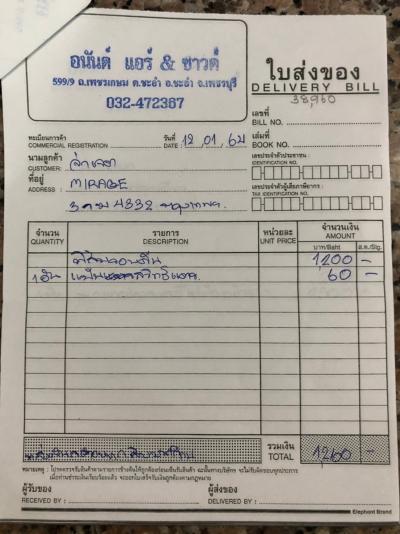 อนันต์ แอร์ & ซาวด์
599/9 ถ.เพชรเกษม ต.ชะอำ อ.ชะอำ จ.เพชรบุรี
032-472367
ใบส่งของ
DELIVERY BILL
38,960
เลขที่
BILL NO.
ทะเบียนการค้า
COMMERCIAL REGISTRATION
วันที่
DATE : 12,01,64
เล่มที่
BOOK NO.
นามลูกค้า
CUSTOMER:
เลขประจำตัวประชาชน :
IDENTIFICATION NO.
ที่อยู่
ADDRESS : MIRAGE
เลขประจำตัวผู้เสียภาษีอากร :
TAX IDENTIFICATION NO.
4332
จำนวน
QUANTITY
รายการ
DESCRIPTION
หน่วยละ
UNIT PRICE
จำนวนเงิน
AMOUNT
บาท/Baht ส.ต./Stg.
1200 -
60 -
รวมเงิน
TOTAL 1,260 -
หมายเหตุ : โปรดตรวจรับสินค้าตามรายการข้างต้นให้ถูกต้องก่อนเซ็นรับสินค้า
ผู้รับของ
RECEIVED BY :
ผู้ส่งของ
DELIVERED BY :
Elephant Brand